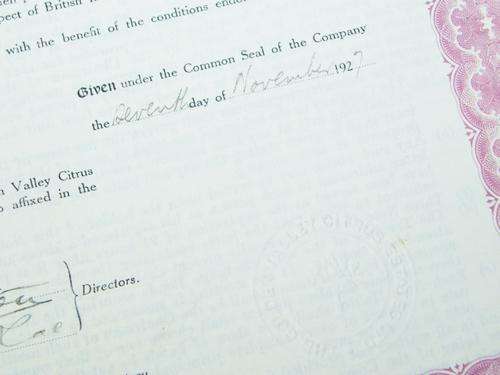 pect of British
with the benefit of the conditions endo
Given under the Common Seal of the Company
the Seventh day of November 1927
n Valley Citrus
o affixed in the
Directors.